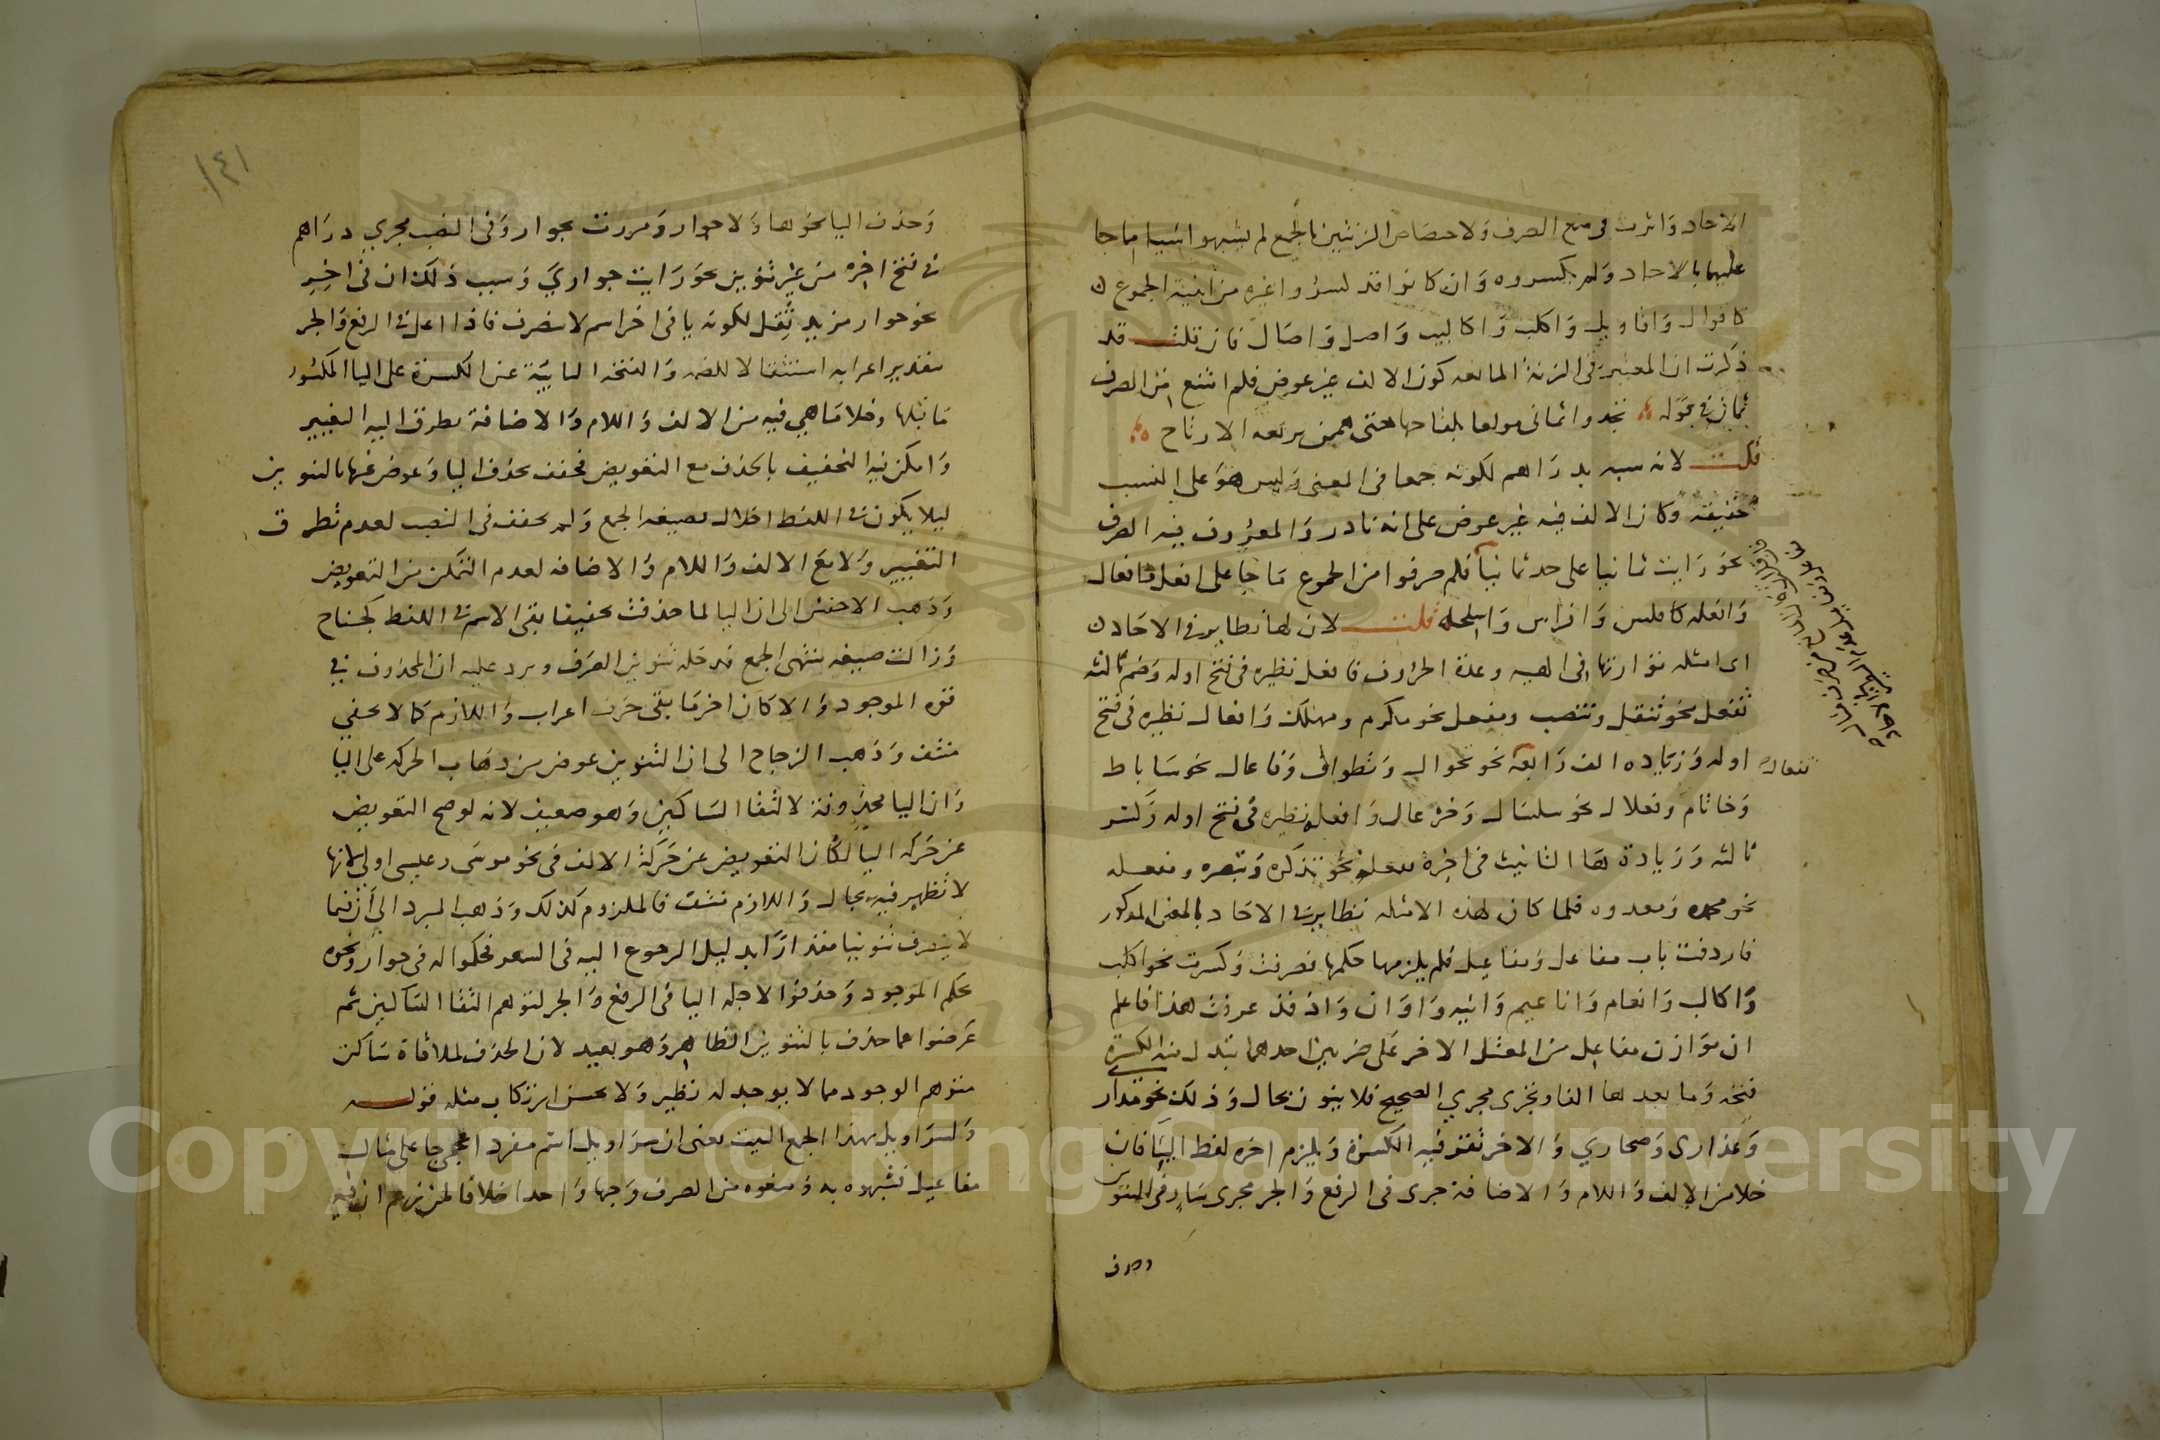 الاحاد واثرت في منع الصرف ولاختصاص الزنتين بالجمع لم يشبهوا شيا مما جا
عليهما بالاحاد ولم يكسروه وان كانوا قد كسروا غيره من ابنية الجموع
كاقوال واقاويل واكلب واكاليب واصل واصال فان قلت قد
ذكرت ان المعتبر في الزنة المانعة كون الالف غير عوض فلم امتنع من الصرف
ثمان في قوله يحدوا ثماني مولعا بلقاحها حتى هممن بزيغة الارتاج
قلت لانه شبه بدراهم لكونه جمعا في المعنى وليس هو على النسب
حقيقة وكان الالف فيه غير عوض على انه نادر والمعروف فيه الصرف
نحو رايت ثمانيا على حد يمانيا فلم صرفوا من الجموع ما جا على افعل وافعال
وافعله كافلس وافراس واسلحه قلت لان لها نظاير في الاحاد
اي امثله توازنها في الهيه وعدة الحروف فافعل نظيره في فتح اوله وضم ثالثه
تفعل نحو تنقل وتنضب ومفعل نحو مكرم ومهلك وافعال نظيره في فتح
اوله وزياده الف رابعة نحو تجوال وتطواف وفاعال نحو ساباط
تفعال
وخاتام وفعلال نحو سلسال وخزعال وافعله نظيره في فتح اوله وكسر
ثالثه وزيادة ها التانيث في اخره تفعله نحو تذكره وتبصره ومفعله
نحو محمده ومعذره فلما كان لهذه الامثله نظاير في الاحاد بالمعنى المذكور
فارقت باب مفاعل ومفاعيل فلم يلزمها حكمها فصرفت وكسرت نحو اكلب
واكالب وانعام واناعيم وانيه واوان واذ قد عرفت هذا فاعلم
ان موازن مفاعل من المعتل الاخر على ضربين احدهما تبدل فيه الكسرة
فتحه وما بعدها الفا ويجرى مجري الصحيح فلا ينون بحال وذلك نحو مدارى
وعذارى وصحاري والاخر تقر فيه الكسرة ويلزم اخره لفظ اليا فان
خلا من الالف واللام والاضافة جرى في الرفع والجر مجرى سار في التنوين
وحذف
وحذف اليا نحو هاولا جوار ومررت بجوار وفي النصب مجري دراهم
في فتح اخره من غير تنوين نحو رايت جواري وسبب ذلك ان في اخر
نحو جوار مزيد ثقل لكونه يا في اخر اسم لا ينصرف فاذا اعل في الرفع والجر
بتقدير اعرابه استثقالا للضمه والفتحه النايبة عن الكسرة على اليا المكسور
ما قبلها وخلا ما هي فيه من الالف واللام والاضافة تطرق اليه التغيير
وامكن فيه التخفيف بالحذف مع التعويض فخفف بحذف اليا وعوض عنها بالتنوين
ليلا يكون في اللفظ اخلال بصيغه الجمع ولم يخفف في النصب لعدم تطرق
التغيير ولا مع الالف واللام والاضافه لعدم التمكن من التعويض
وذهب الاخفش الى ان اليا لما حذفت تخفيفا بقي الاسم في اللفظ كجناح
وزالت صيغه منتهى الجمع فدخله تنوين الصرف ويرد عليه ان المحذوف في
قوه الموجود والا كان اخر ما بقي حرف اعراب واللازم كما لا يخفى
منتف وذهب الزجاج الى ان التنوين عوض من ذهاب الحركه على اليا
وان اليا محذوفة لالتقا الساكنين وهو ضعيف لانه لو صح التعويض
عن حركه اليا لكان التعويض عن حركة الالف في نحو موسى وعيسى اولي لانها
لا تظهر فيه بحال واللازم منتف فالملزوم كذلك وذهب المبرد الي ان فيما
لا ينصرف تنوينا مقدرا بدليل الرجوع اليه في الشعر فحكموا له في جوار ونحوه
بحكم الموجود وحذفوا لاجله اليا في الرفع والجر لتوهم التقا الساكنين ثم
عوضوا عما حذف بالتنوين الظاهر وهو بعيد لان الحذف لملاقاة ساكن
متوهم الوجود مما لا يوجد له نظير ولا يحسن ارتكاب مثله قوله
ولسراويل بهذا الجمع البيت يعنى ان سراويل اسم مفرد اعجمي جا على مثال
مفاعيل فشبهوه به ومنعوه من الصرف وجها واحدا خلافا لمن زعم ان فيه
١٤١